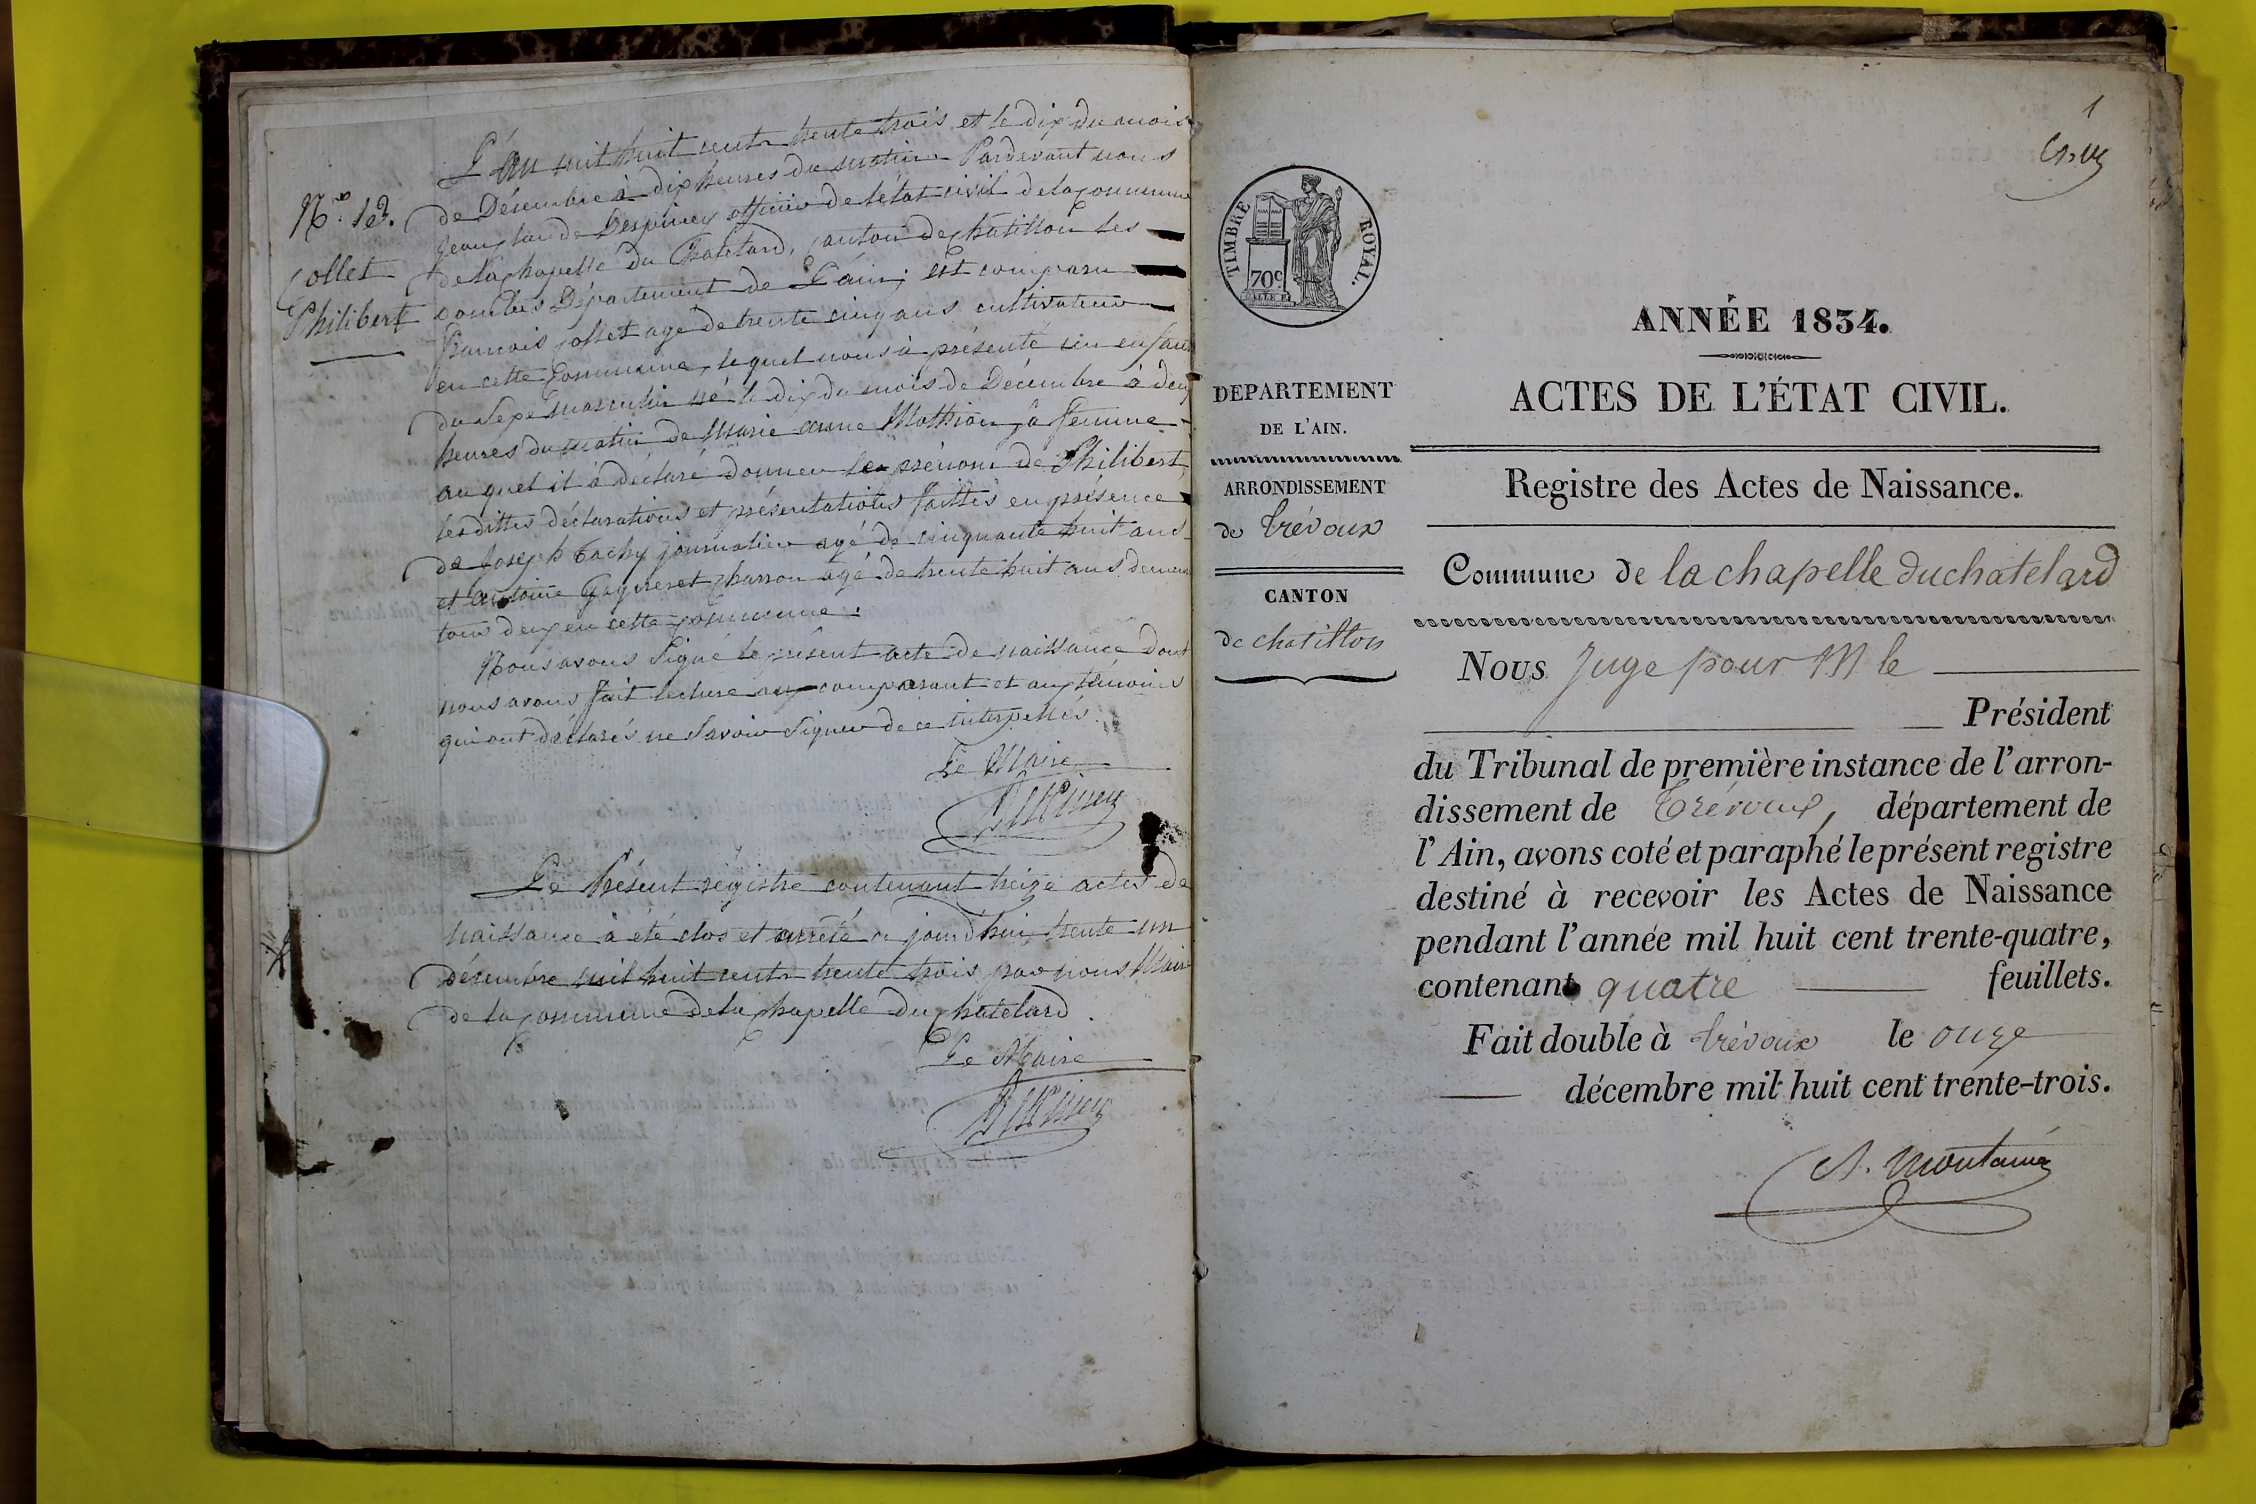 L'An mil huit cent trente trois, et le dix du mois
de Décembre à dix heures du matin Pardevant nous
Jean claude Despiney officier de l'état civil de la commune
de la chapelle du Chatelard, canton de chatillon les
Dombes Département de L'ain; est comparu
francois collet agé de trente cinq ans cultivateur
en cette Commune, lequel nous à présenté un enfant
du Sexe masculin né le dix du mois de Décembre à deux
heures du matin de Marie anne sa femme
auquel il à déclaré donner le prénom de Philibert
lesdittes déclarations et présentations faittes en présence
de Joseph journalier agé de cinquante huit ans
et Antoine charron agé de trente huit ans demeurant
tous deux en cette commune.
Nous avons Signé le présent acte de naissance dont
nous avons fait lecture aux comparant et aux témoins
qui ont déclarés ne Savoir Signer de ce interpellés.
Le Maire
Despiney
N.º 13.
Collet
Philibert
Le Présent régistre contenant treize actes de
naissance à été clos et arrêté ce jourd'hui trente un
décembre mil huit cent trente trois par nous Maire
de la commune de la chapelle du chatelard.
Le Maire
Despiney
1
TIMBRE ROYAL.
70c
DEPARTEMENT
DE L'AIN.
ARRONDISSEMENT
de Trévoux
CANTON
de chatillon
ANNÉE 1834.
ACTES DE L'ÉTAT CIVIL.
Registre des Actes de Naissance.
Commune de la chapelle du chatelard
Nous Juge pour M le
Président
du Tribunal de première instance de l'arron-
dissement de Trévoux, département de
l'Ain, avons coté et paraphé le présent registre
destiné à recevoir les Actes de Naissance
pendant l'année mil huit cent trente-quatre,
contenant quatre feuillets.
Fait double à Trévoux le onze
décembre mil huit cent trente-trois.